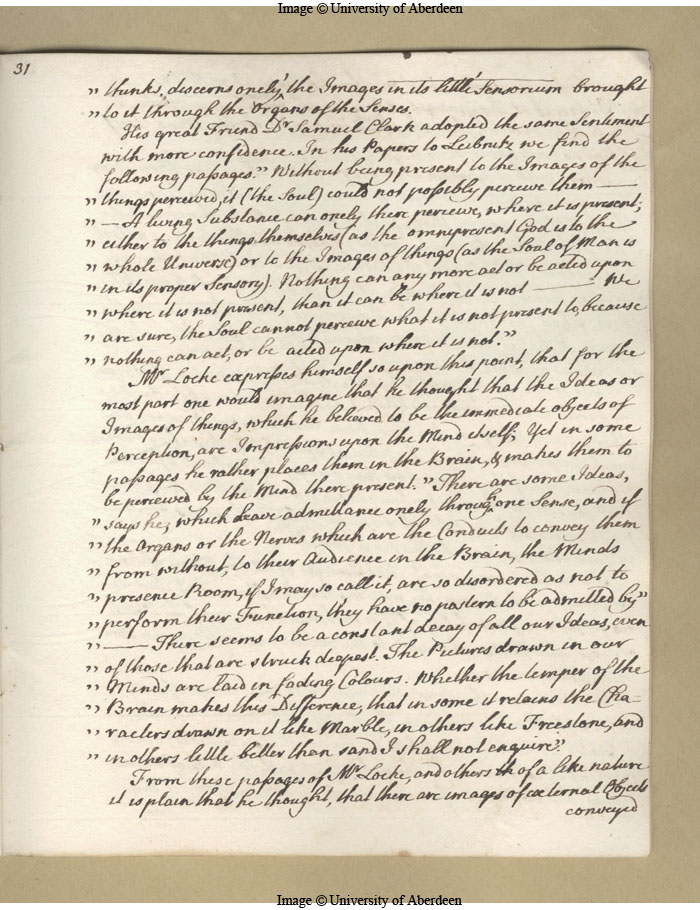 Image © University of Aberdeen
31
" thinks, discerns onely, the Images in its little Sensorium brought
" to it through the Organs of the Senses.
His great Friend Dr Samuel Clark adopted the same Sentiment
with more confidence. In his Papers to Leibnitz we find the
following passages. " Without being present to the Images of the
" things perceived, it (the Soul) could not possibly perceive them ——
" — A living Substance can onely there perceive, where it is present;
" either to the things themselves (as the omnipresent God is to the
" whole Universe) or to the Images of things (as the Soul of Man is
" in its proper Sensory). Nothing can any more act or be acted upon
" where it is not present, than it can be where it is not —— We
" are sure, the Soul cannot perceive what it is not present to, because
" nothing can act, or be acted upon where it is not."
Mr Locke expresses himself so upon this point, that for the
most part one would imagine that he thought that the Ideas or
Images of things, which he believed to be the immediate objects of
Perception, are Impressions upon the Mind itself; Yet in some
passages he rather places them in the Brain, & makes them to
be perceived by the Mind there present. " There are some Ideas,
" says he, which have admittance onely through one Sense, and if
" the Organs or the Nerves which are the Conduits to convey them
" from without, to their Audience in the Brain, the Minds
" presence Room, if I may so call it, are so disordered as not to
" perform their Function, they have no postern to be admitted by"
" —— There seems to be a constant decay of all our Ideas, even
" of those that are struck deepest. The Pictures drawn in our
" Minds are laid in fading Colours. Whether the temper of the
" Brain makes this Difference, that in some it retains the Cha-
" racters drawn on it like Marble, in others like Freestone, and
" in others little better than sand I shall not enquire."
From these passages of Mr Locke, and others of a like nature
it is plain that he thought, that there are images of external Objects
conveyed
Image © University of Aberdeen